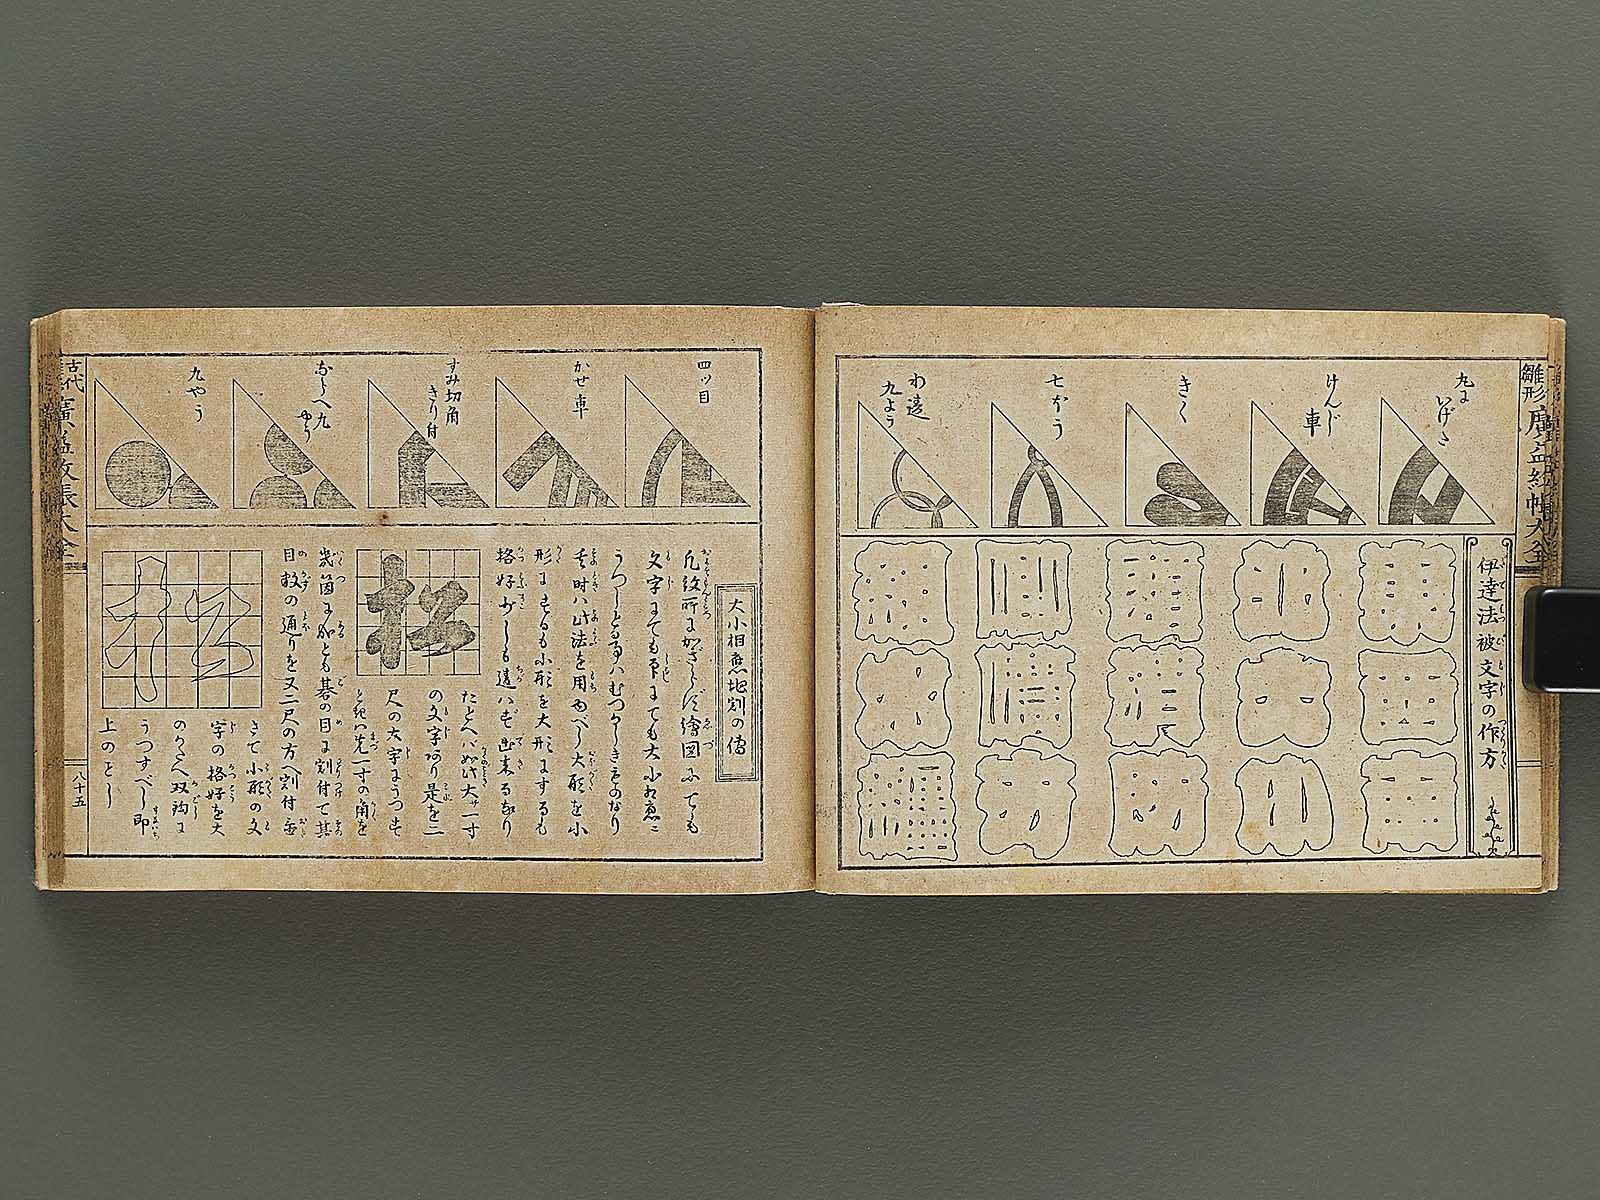 雛形
廣益紋帳大全
丸に
いげさ
けんじ
車
きく
七本う
わ違
九よう
伊達法被文字の作方
四ツ目
かせ車
すみ切角
きり付
九やう
大小相應地割の傳
凡紋所にかぎらず繪図にても
文字にても下にても大小相應に
うつしとる事ハむつかしきものなり
其時ハ此法を用ゆべし大形を小
形にするも小形を大形にするも
格好少しも違ハず出来るなり
松
たとへバ如此大サ一寸
の文字あり是を二
尺の大字にうつす
ときハ先一寸の角を
幾箇に成とも碁の目に割付て其
目数の通りを又二尺の方へ割付置
さて小形の文
字の格好を大
のかたへ双鈎に
うつすべし即
上のごとし
古代
廣益紋帳大全
八十五